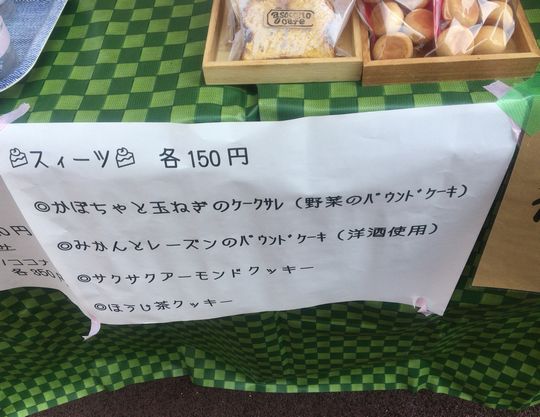 asocono
cafe
🍰スィーツ🍰 各150円
◎かぼちゃと玉ねぎのケークサレ(野菜のパウンドケーキ)
◎みかんとレーズンのパウンドケーキ(洋酒使用)
◎サクサクアーモンドクッキー
◎ほうじ茶クッキー
円
社
ノココナ
各350円